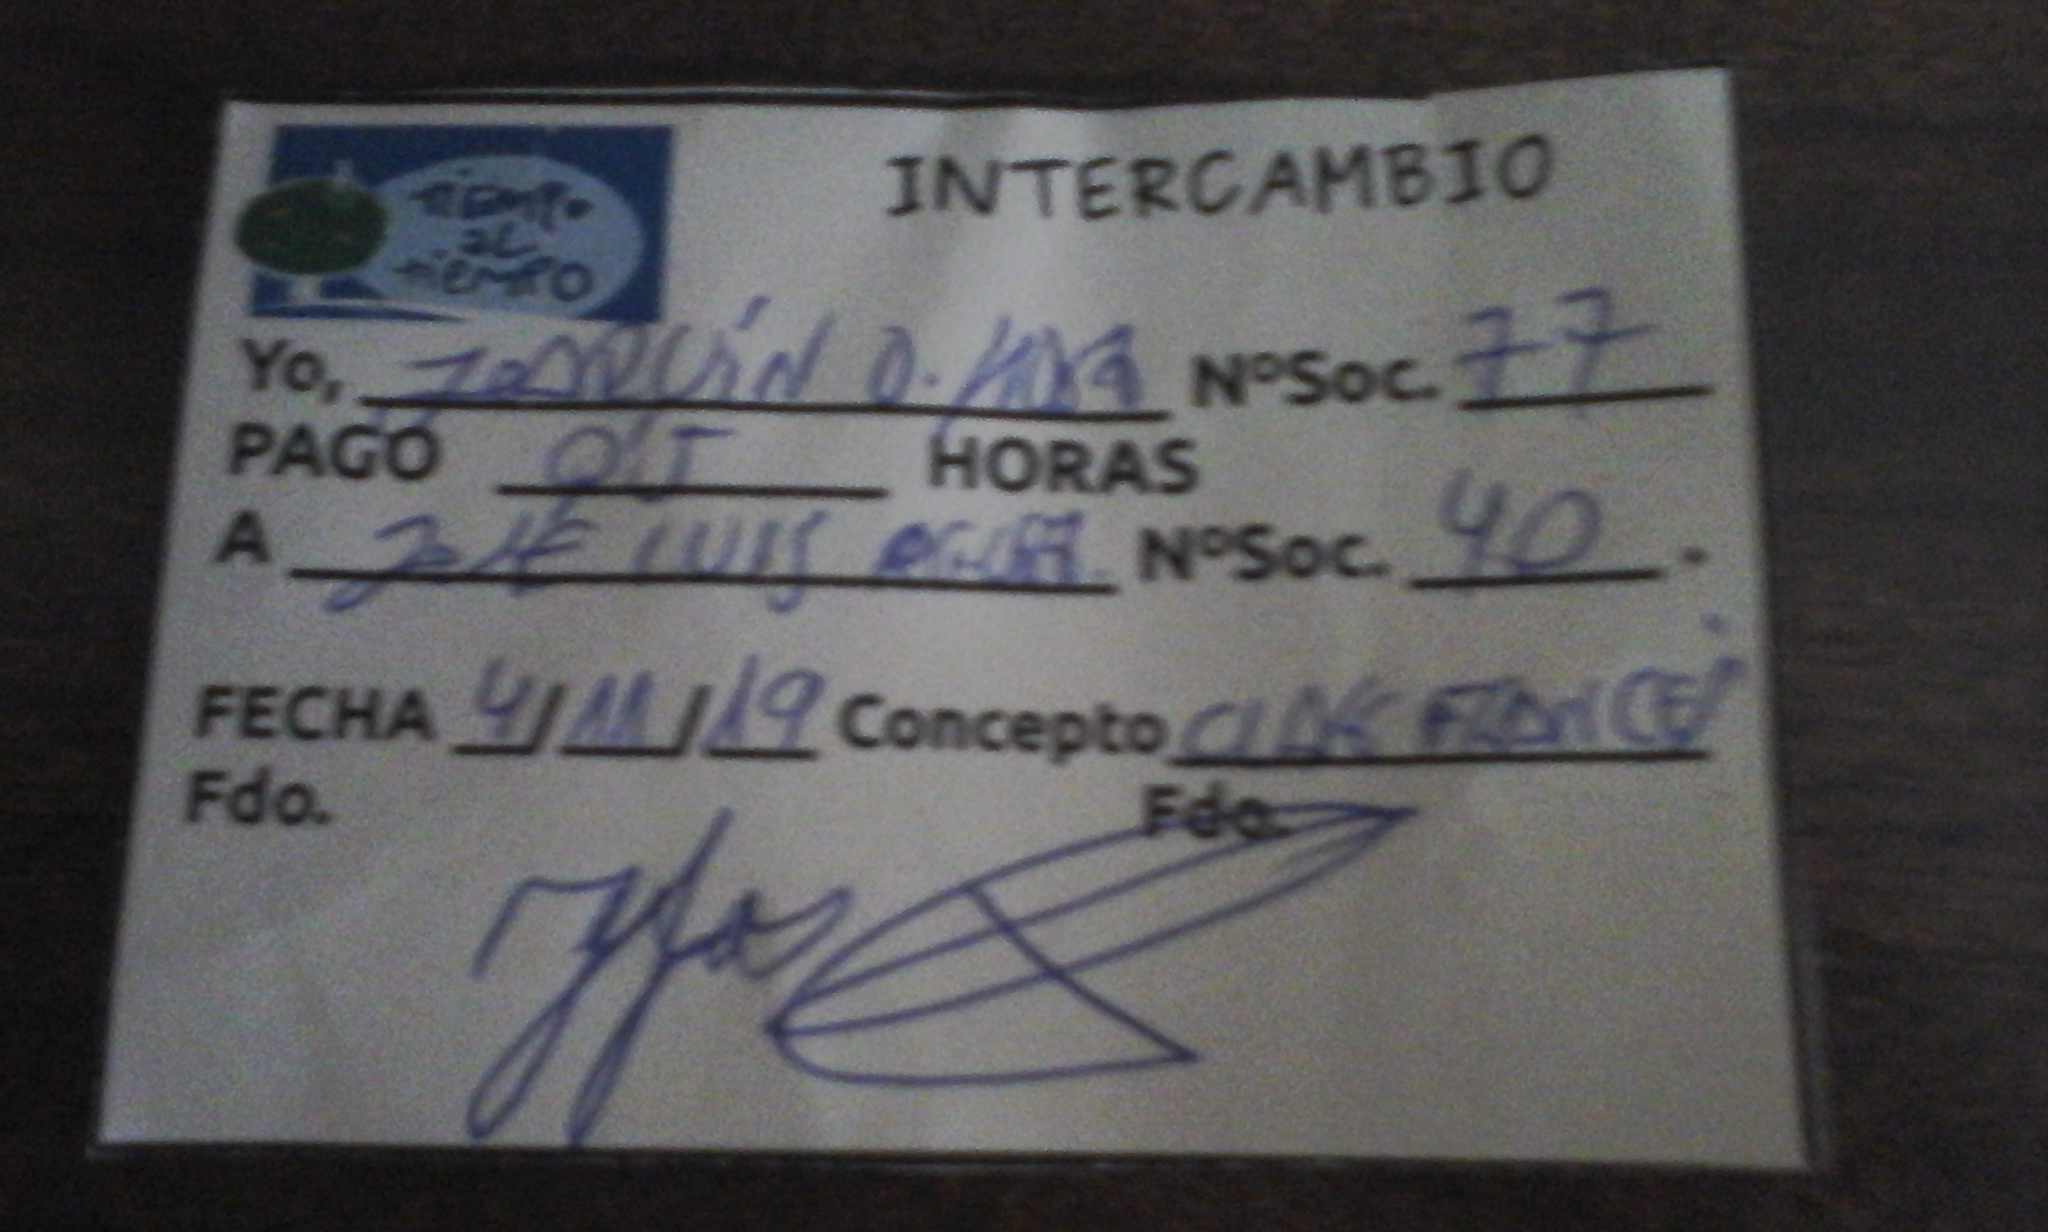 TIEMPO
AL
TIEMPO
INTERCAMBIO
Yo, JOAQUÍN D. NºSoc. 77
PAGO HORAS
A JOSÉ LUIS NºSoc. 40.
FECHA 4/11/19 Concepto CLAS FRANCÉS
Fdo. Fdo.